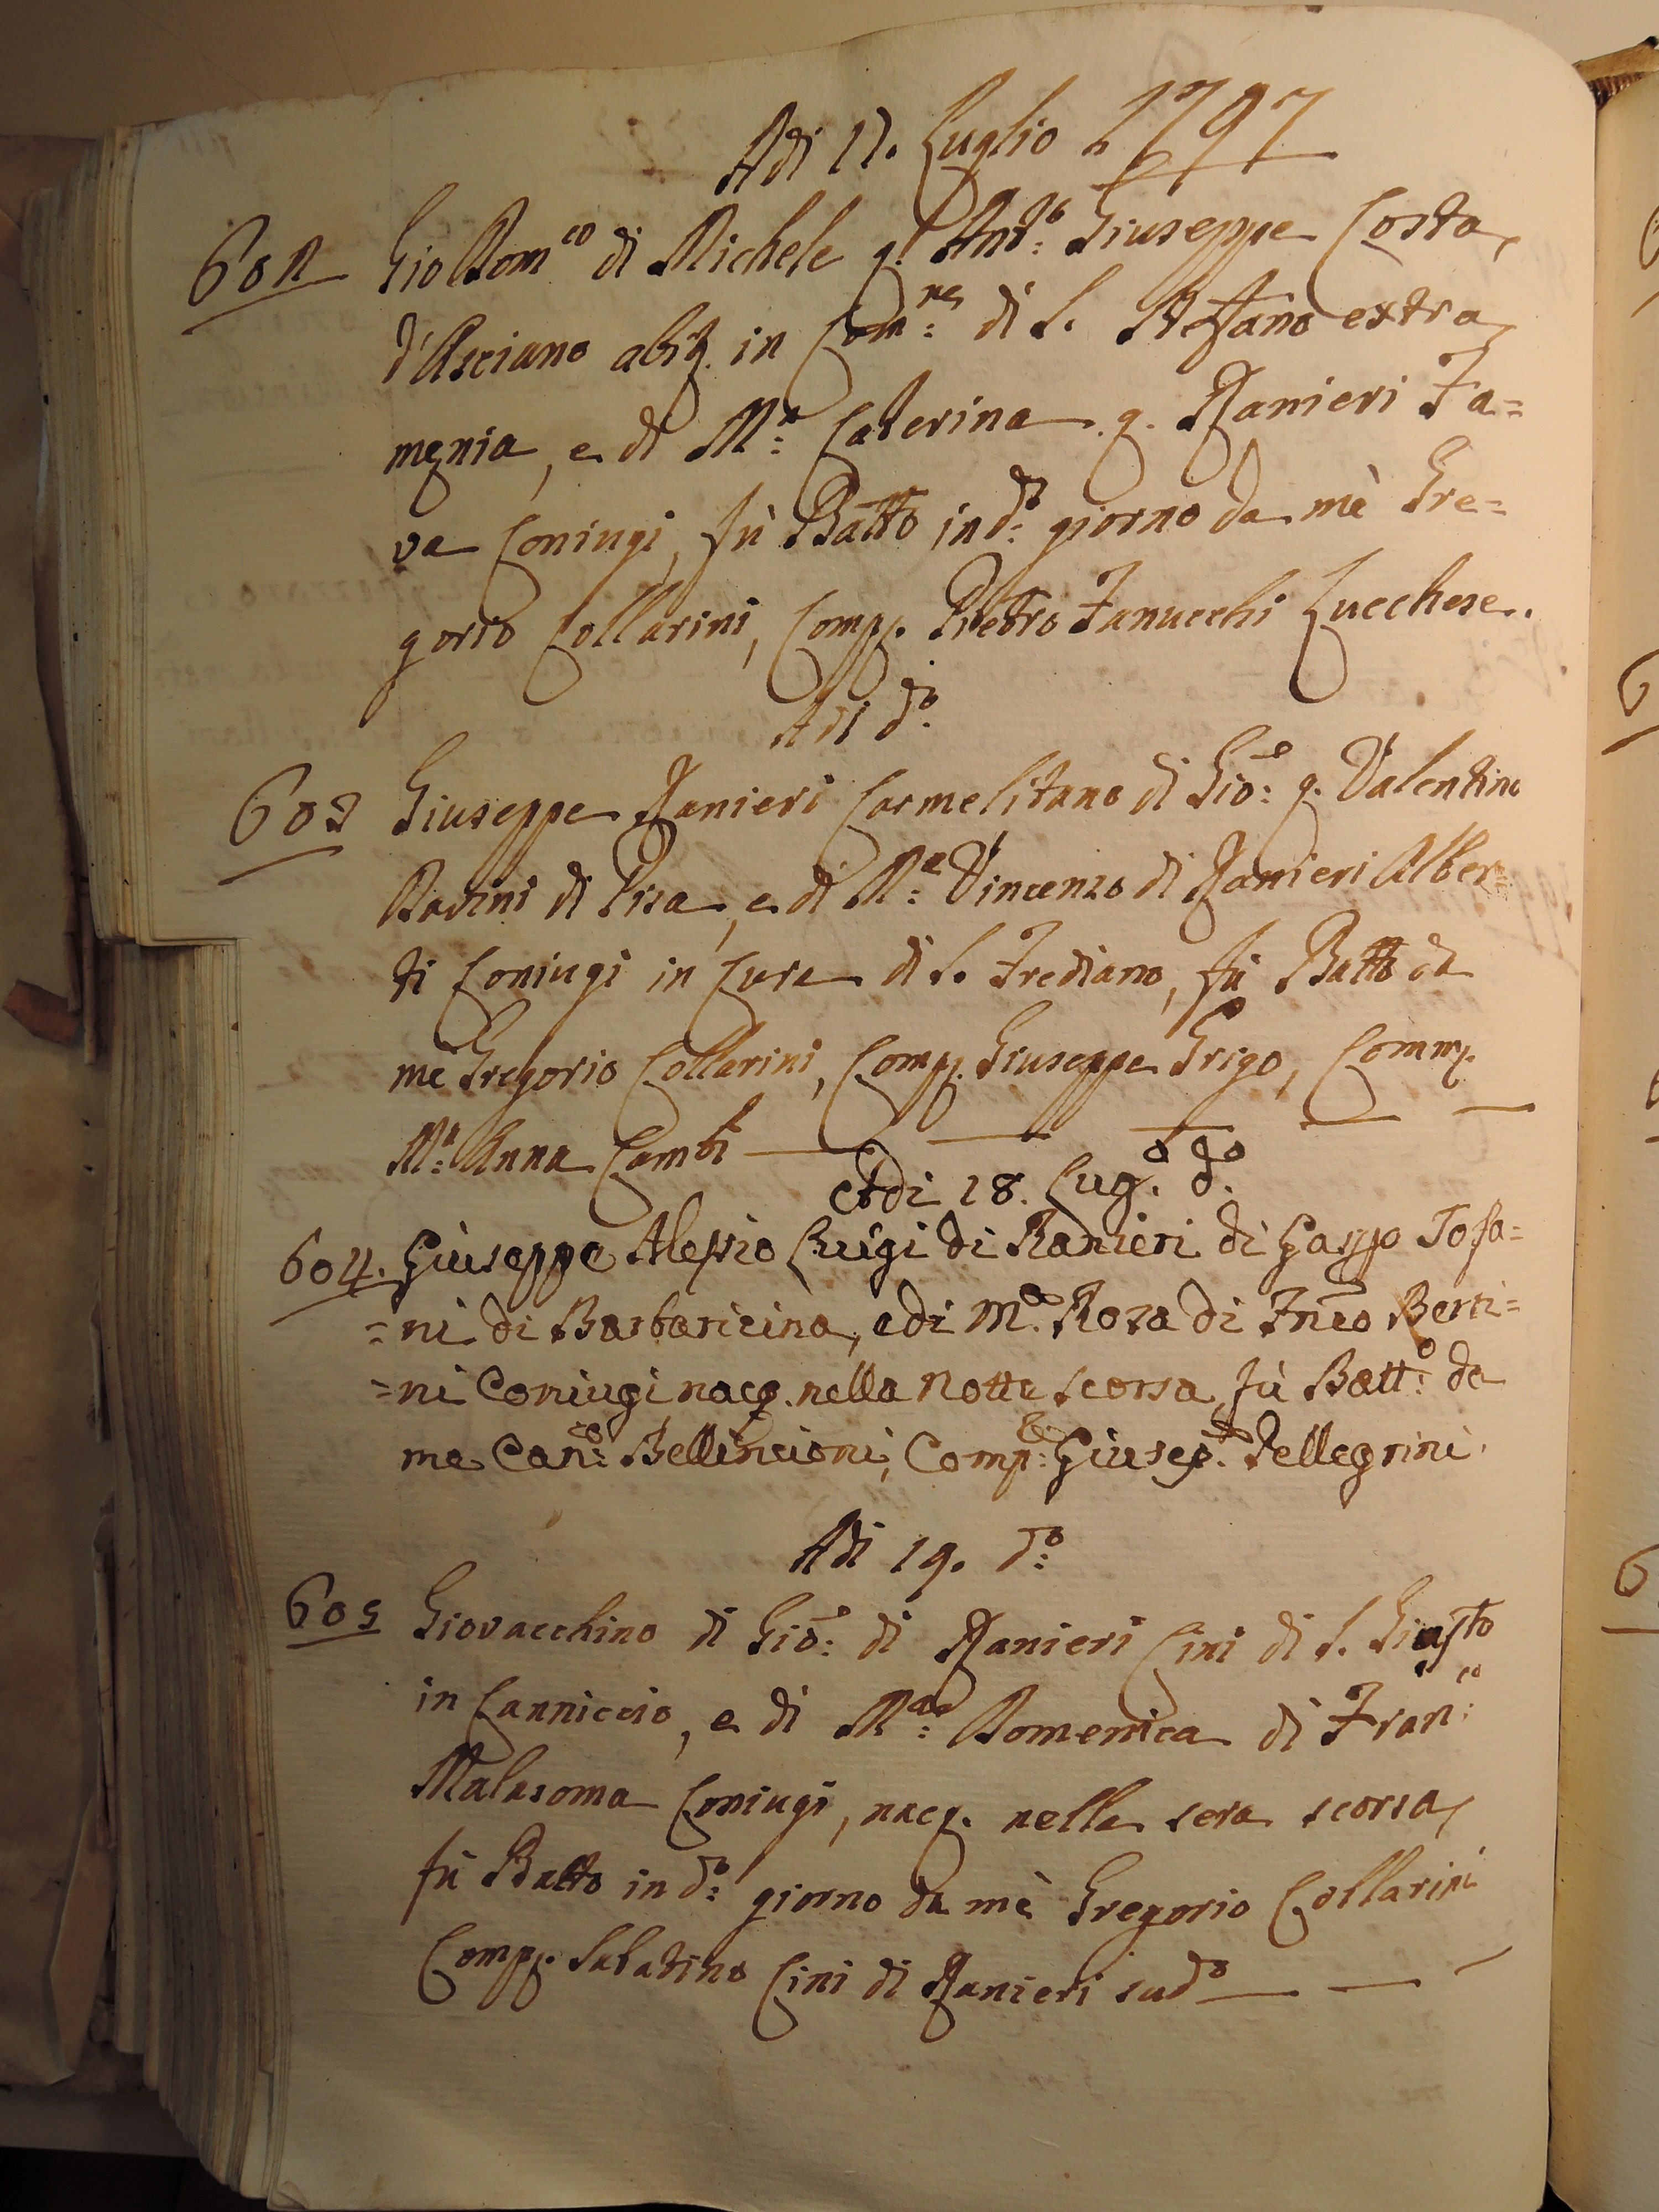 Adi 17. Luglio 1797
602 Gio Dom.co di Michele q. Ant.o Giuseppe Costa
d'Asciano abit. in Com.re di S. Steffano extra
menia, e di M.a Caterina q. Ranieri Fa=
va Coniugi, fù Batto in d.o giorno da mè Gre=
gorio Collarini, Comp. Pietro Fanucchi Lucchese.
Adi d.o
603 Giuseppe Ranieri Carmelitano di Gio: q. Valentino
di Pisa, e di M.a Vincenza di Ranieri Alber=
ti Coniugi in Cura di S. Frediano, fù Batto da
mè Gregorio Collarini, Comp. Giuseppe Grigo, Comm.
M.a Anna Cambi
Adi 18. Lug.o d.o
604. Giuseppe Alessio Luigi di Ranieri di Gaspo Tofa=
=ni di Barbaricina, e di M.a Rosa di Fnco Berti=
=ni Coniugi nacq. nella notte scorsa fù Batt.o da
me Can.co Bellincioni, Comp.e Giusep. Pellegrini.
Adi 19. d.o
605 Giovacchino di Gio: di Ranieri Cini di S. Giusto
in Canniccio, e di M.a Domenica di Fran.co
Malasoma Coniugi, nacq. nella sera scorsa
fù Batto in d.o giorno da mè Gregorio Collarini
Comp. Sabatino Cini di Ranieri sud.o